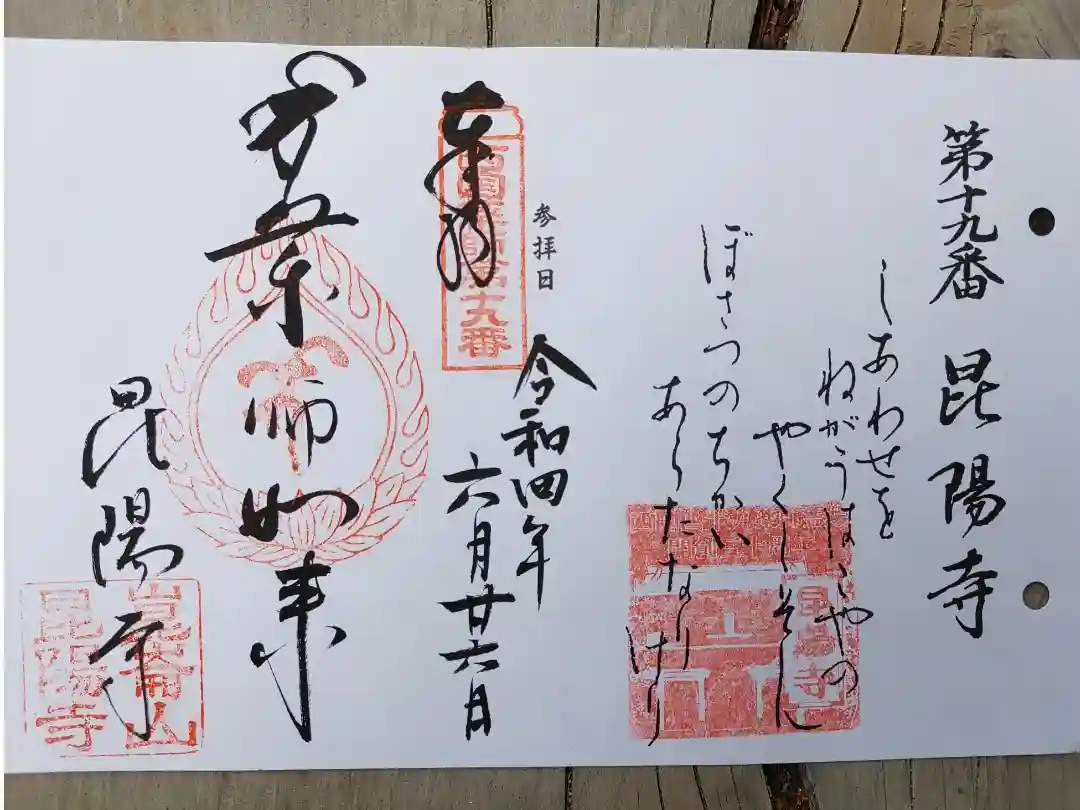 第十九番 昆陽寺
しあわせを
ねがうはこやの
やくしそん
ぼさつのちかい
あらたなりけり
昆陽寺
参拝日
令和四年
六月廿六日
奉拝
西国薬師第十九番
薬師如来
昆陽寺
崑崙山
昆陽寺